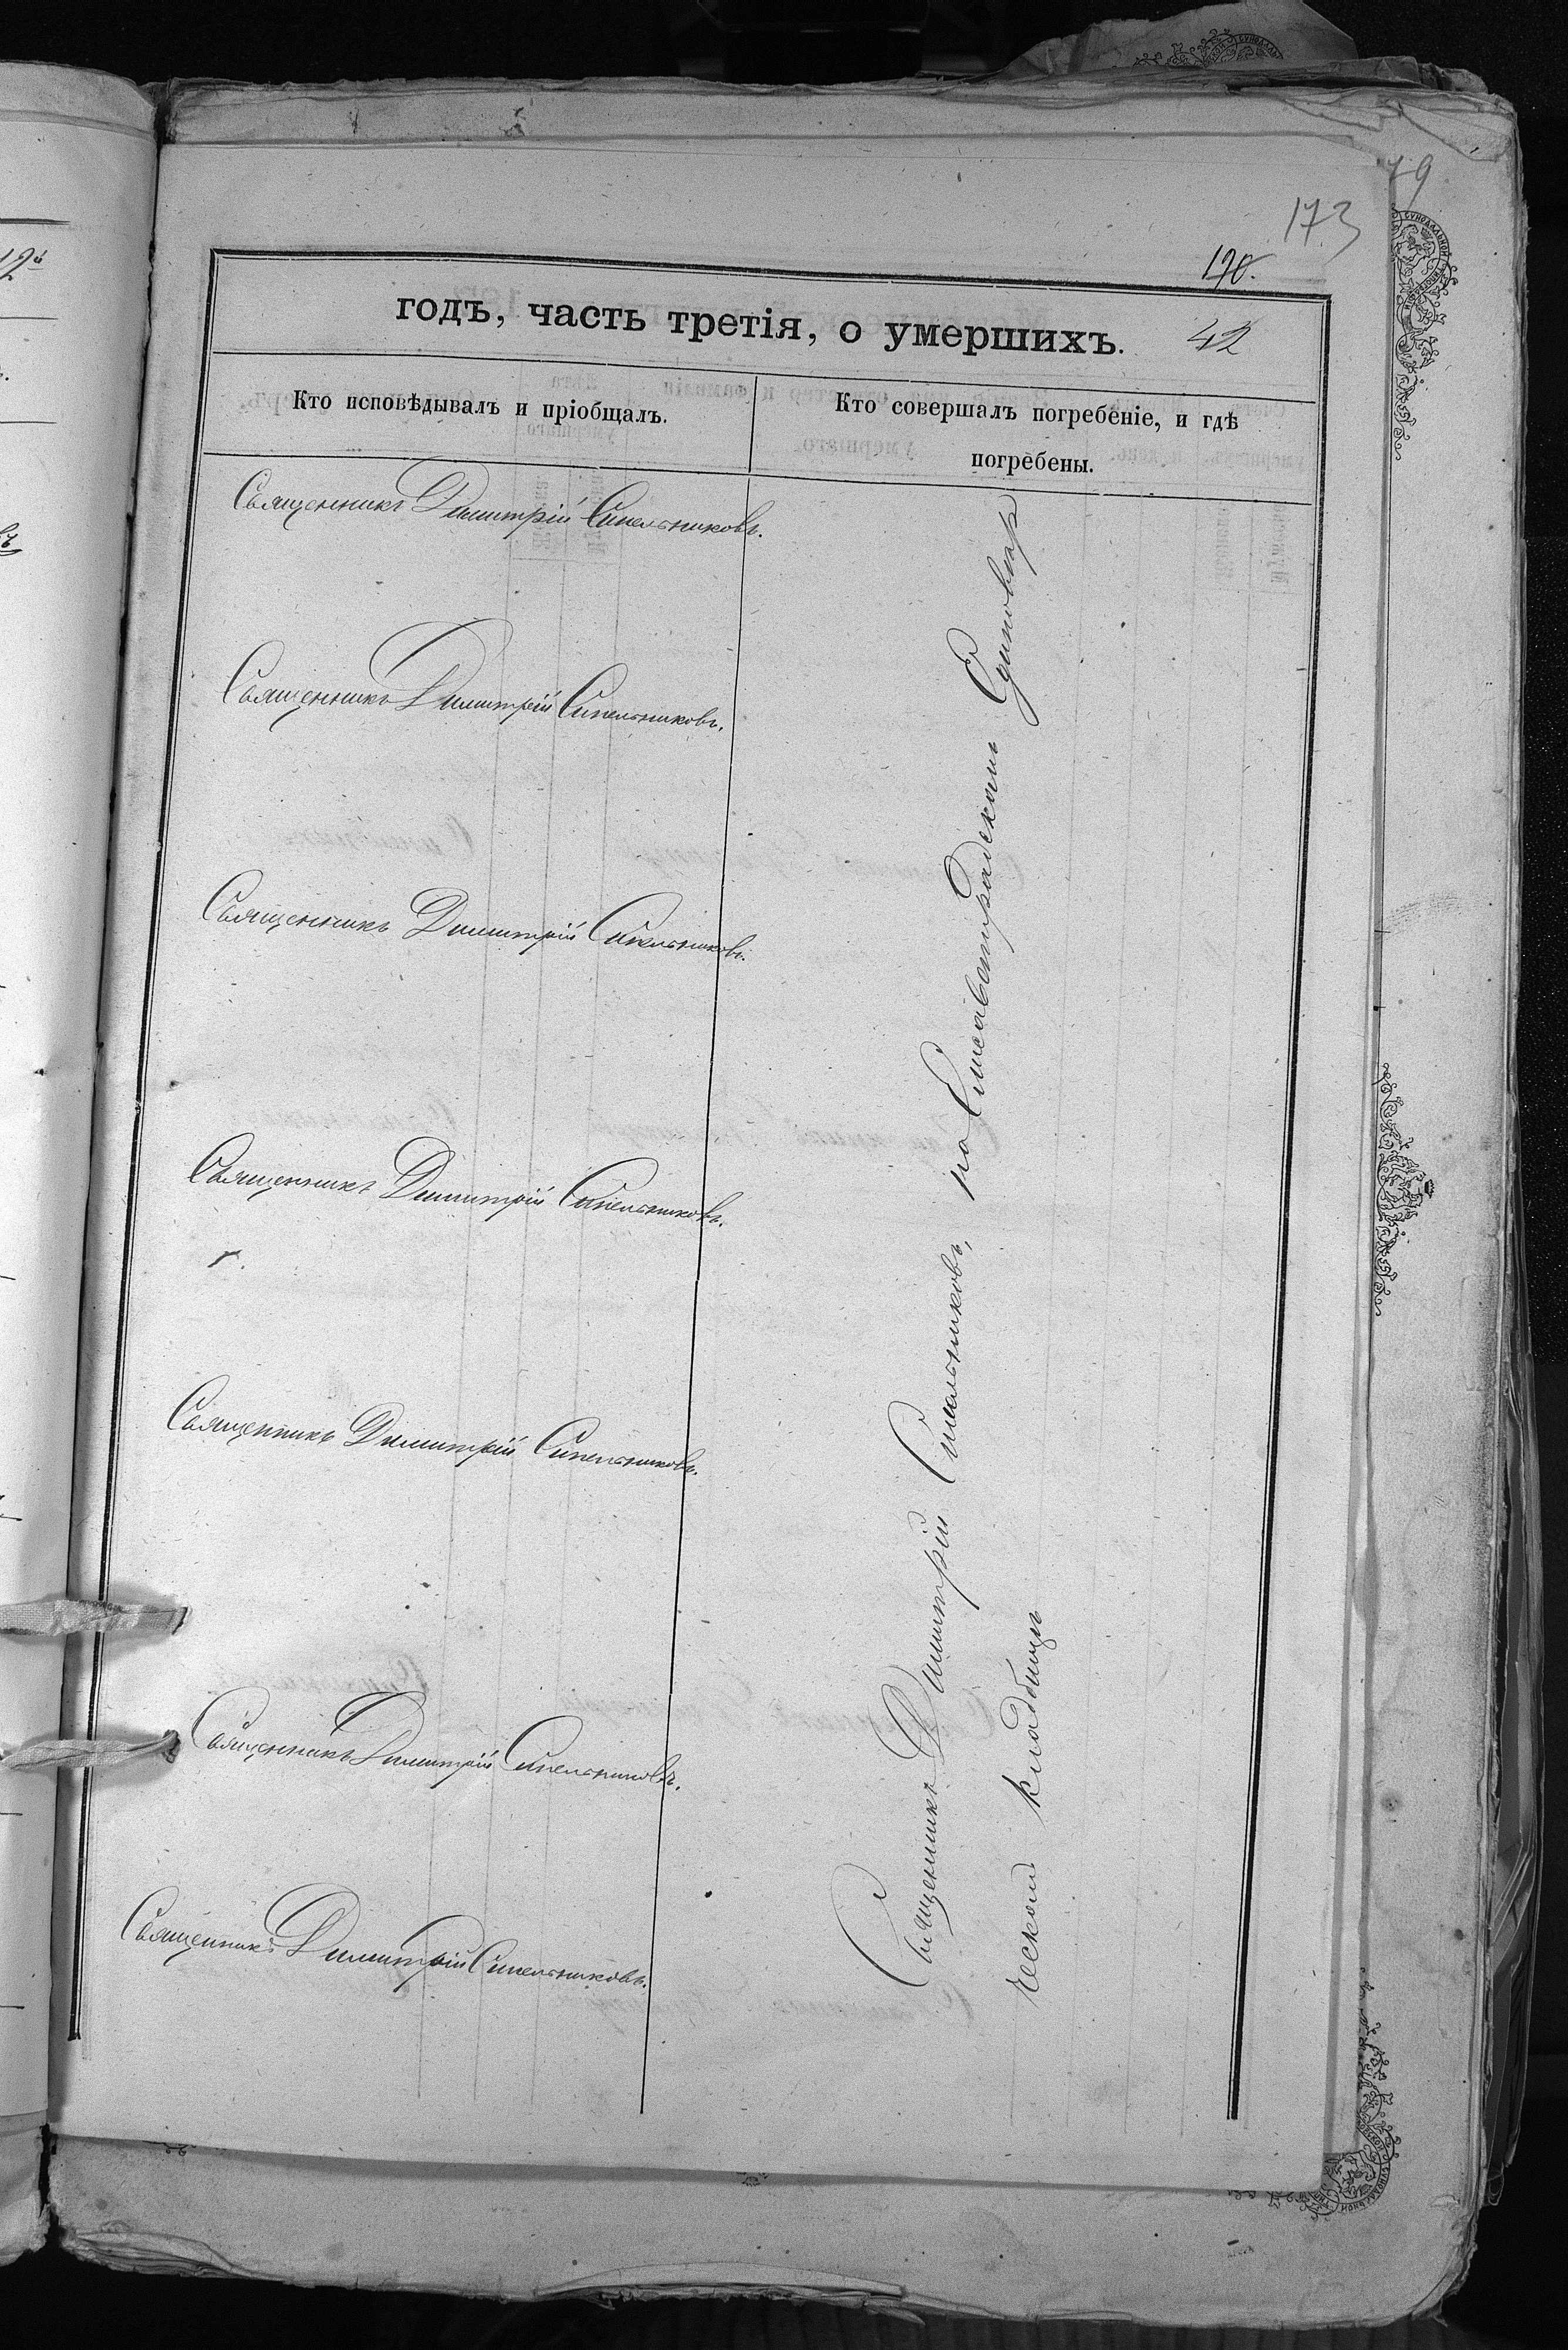 79
173
170.
годъ, часть третія, о умершихъ. 42
Кто исповѣдывалъ и пріобщалъ.
Кто совершалъ погребеніе, и гдѣ
погребены.
Священникъ Димитрій Синельниковъ.
Священникъ Димитрій Синельниковъ.
Священникъ Димитрій Синельниковъ.
Священникъ Димитрій Синельниковъ.
Священникъ Димитрій Синельниковъ.
Священникъ Димитрій Синельниковъ.
Священникъ Димитрій Синельниковъ.
Священникъ Димитрій Синельниковъ, на Елисаветградскомъ Единовѣр
ческомъ кладбищѣ